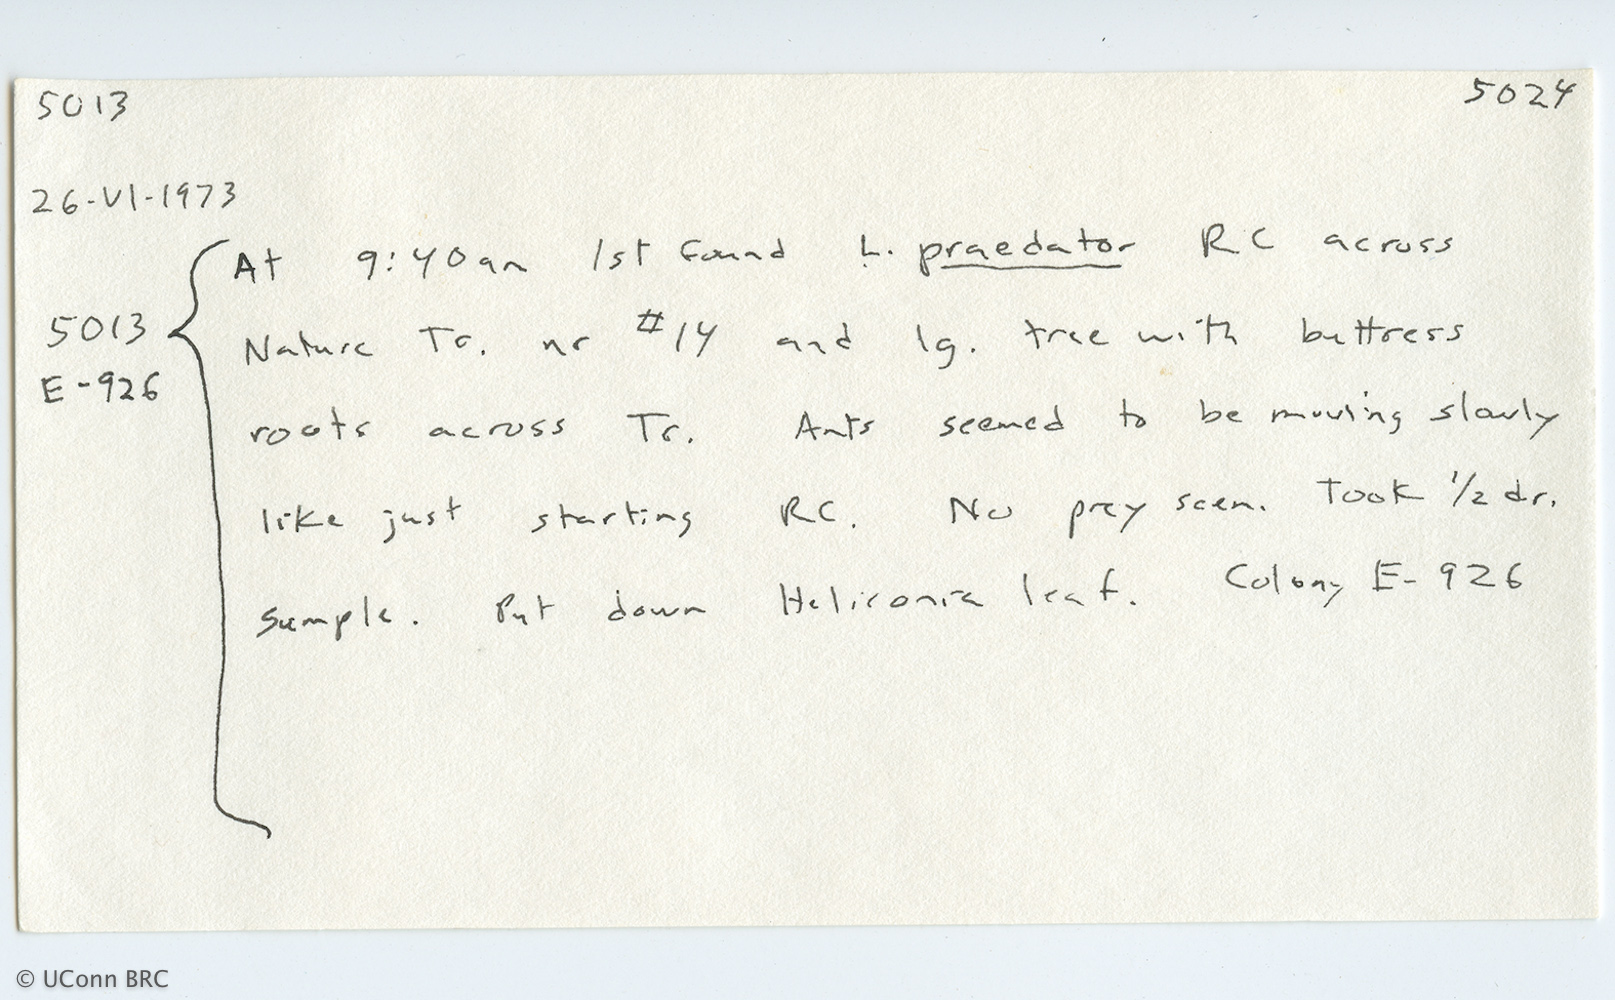 5013 5024
26-VI-1973
At 9:40am 1st found L. praedator RC across
5013 Nature Tr. nr #14 and lg. tree with buttress
E-926
roots across Tr. Ants seemed to be moving slowly
like just starting RC. No prey seen. Took 1/2 dr.
sample. Put down Heliconia leaf. Colony E-926
© UConn BRC